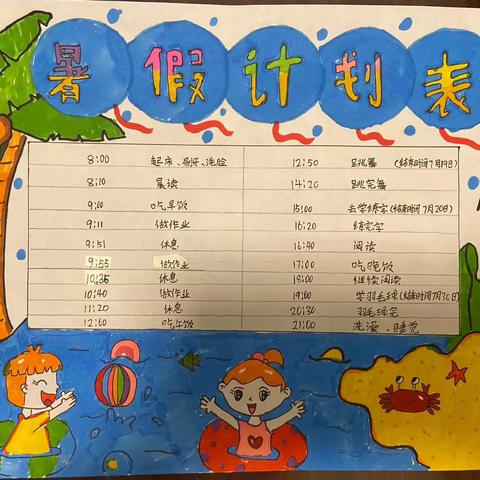 暑假计划表
8:00 起床、刷牙、洗脸 12:50 跳舞 (结束时间7月19日)
8:10 晨读 14:20 跳完舞
9:00 吃早饭 15:00 去学练字(结束时间7月20日)
9:11 做作业 16:20 练完字
9:51 休息 16:40 阅读
9:55 做作业 17:00 吃晚饭
10:35 休息 18:00 继续阅读
10:40 做作业 19:00 学羽毛球(结束时间7月30日)
11:20 休息 20:30 羽毛球完
12:00 吃午饭 21:00 洗澡、睡觉